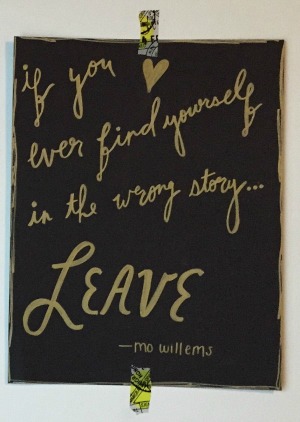 if you
ever find yourself
in the wrong story...
LEAVE
—mo willems